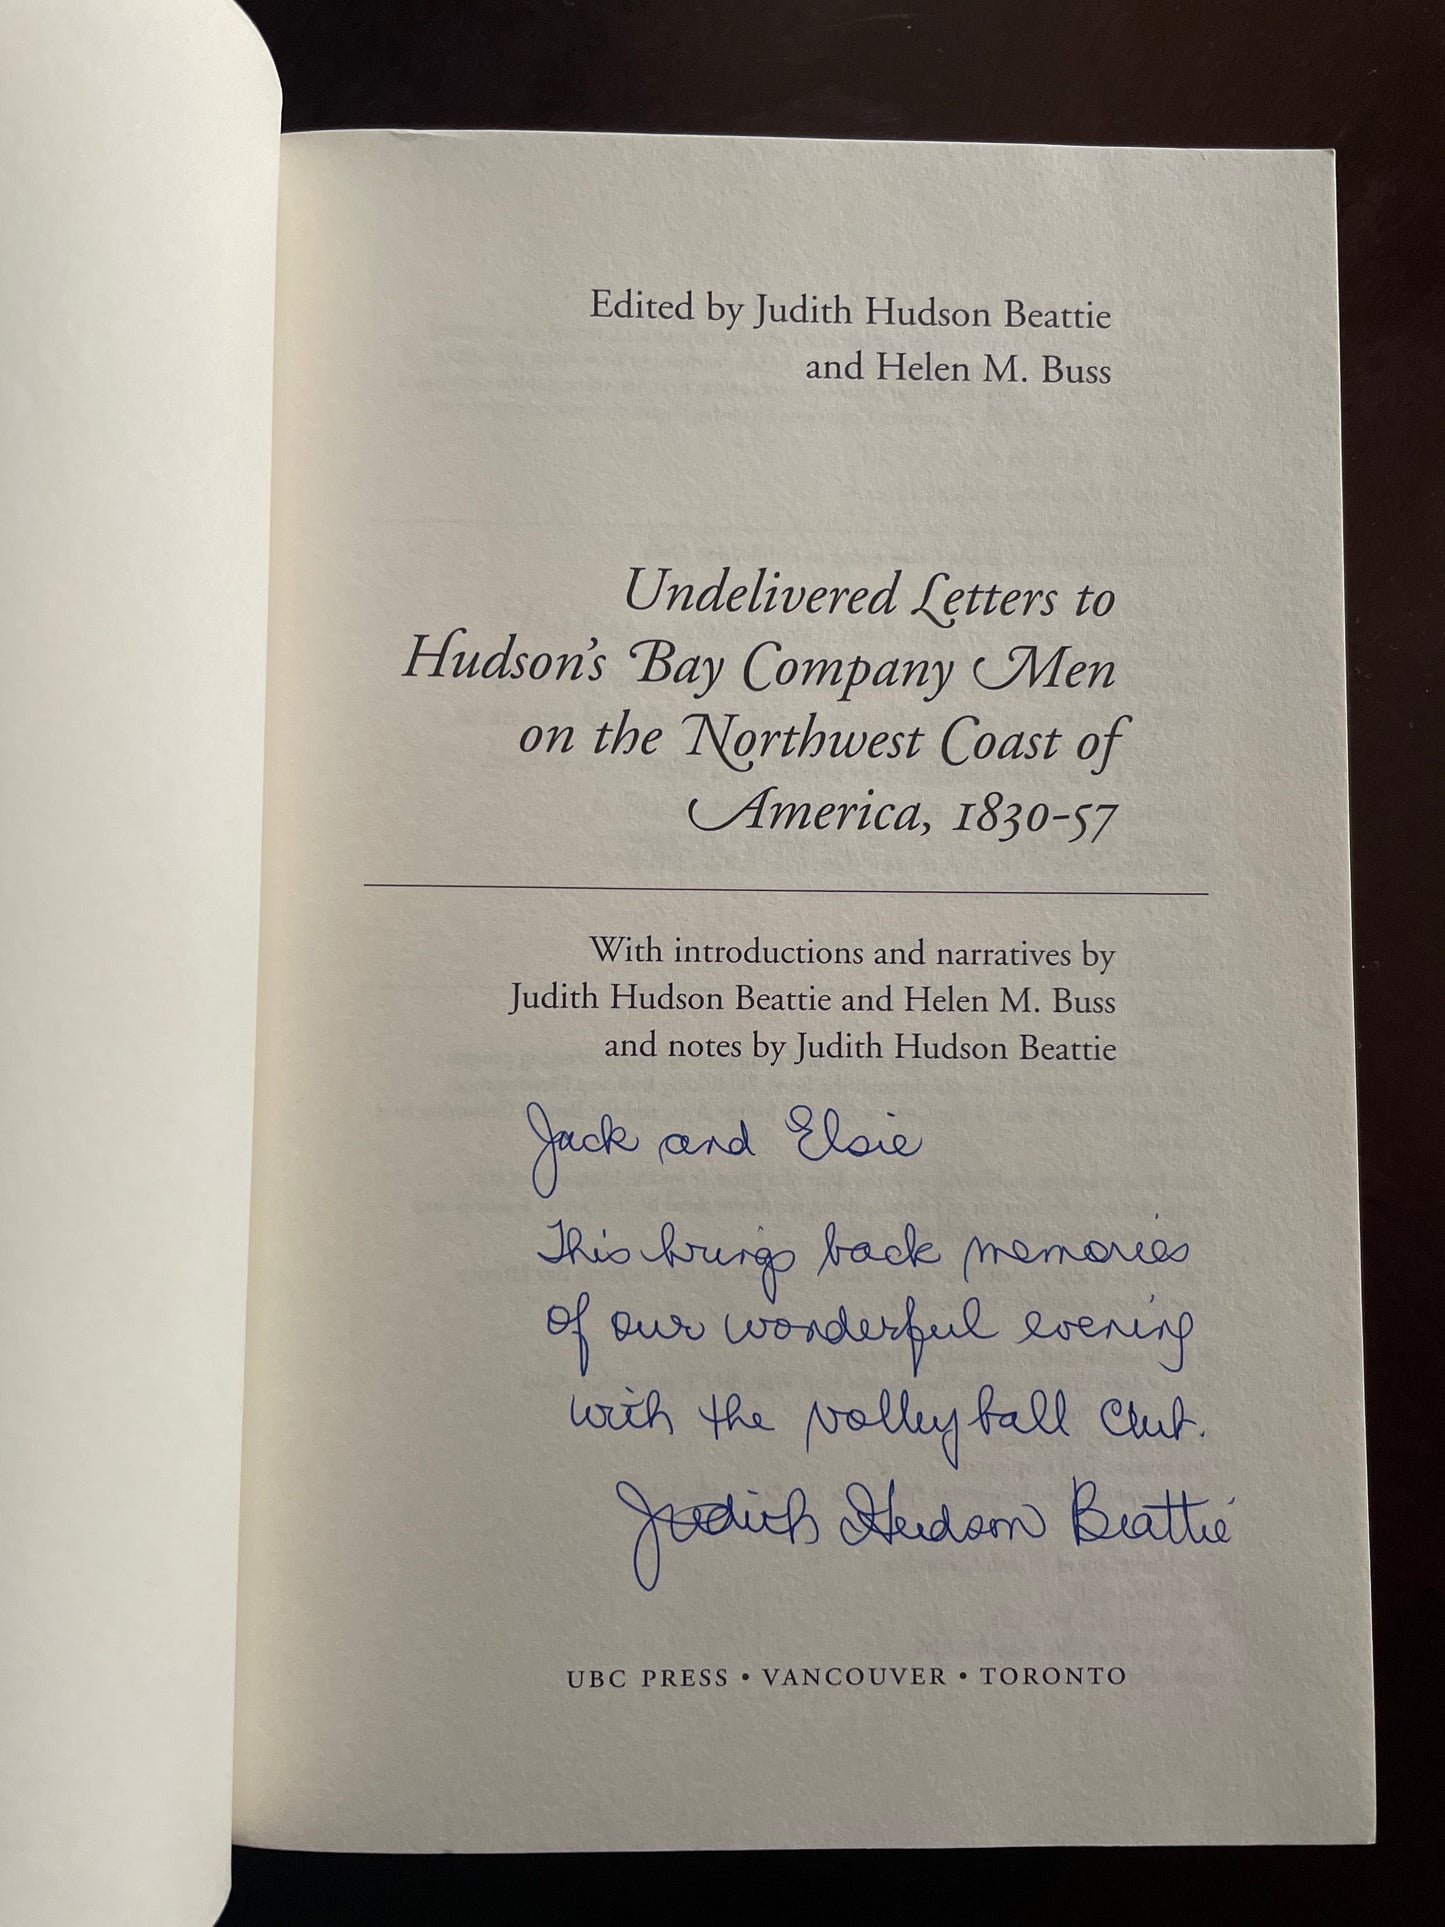 Edited by Judith Hudson Beattie
and Helen M. Buss
Undelivered Letters to
Hudson's Bay Company Men
on the Northwest Coast of
America, 1830-57
With introductions and narratives by
Judith Hudson Beattie and Helen M. Buss
and notes by Judith Hudson Beattie
Jack and Elsie
This brings back memories
of our wonderful evening
with the volleyball Club.
Judith Hudson Beattie
UBC PRESS • VANCOUVER • TORONTO